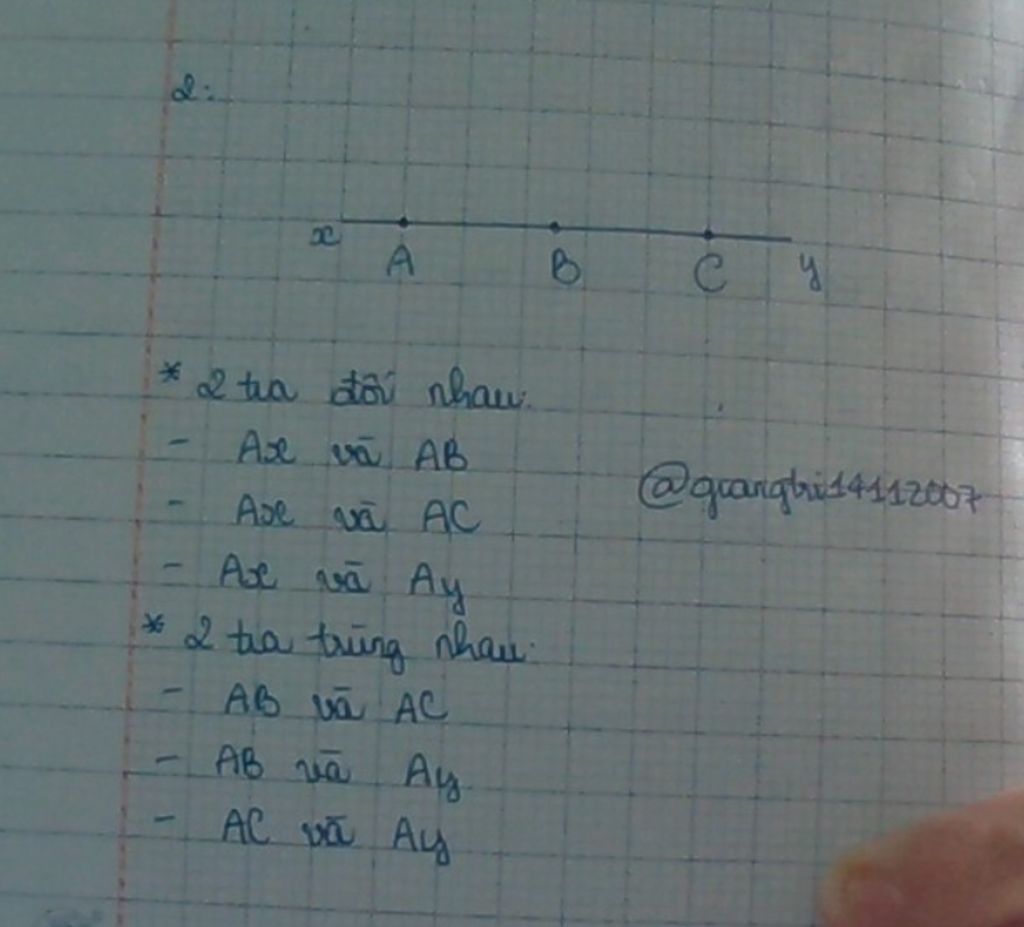 2:
x A B C y
* 2 tia đối nhau:
- Ax và AB
- Ax và AC
@quangtri14112007
- Ax và Ay
* 2 tia trùng nhau:
- AB và AC
- AB và Ay
- AC và Ay